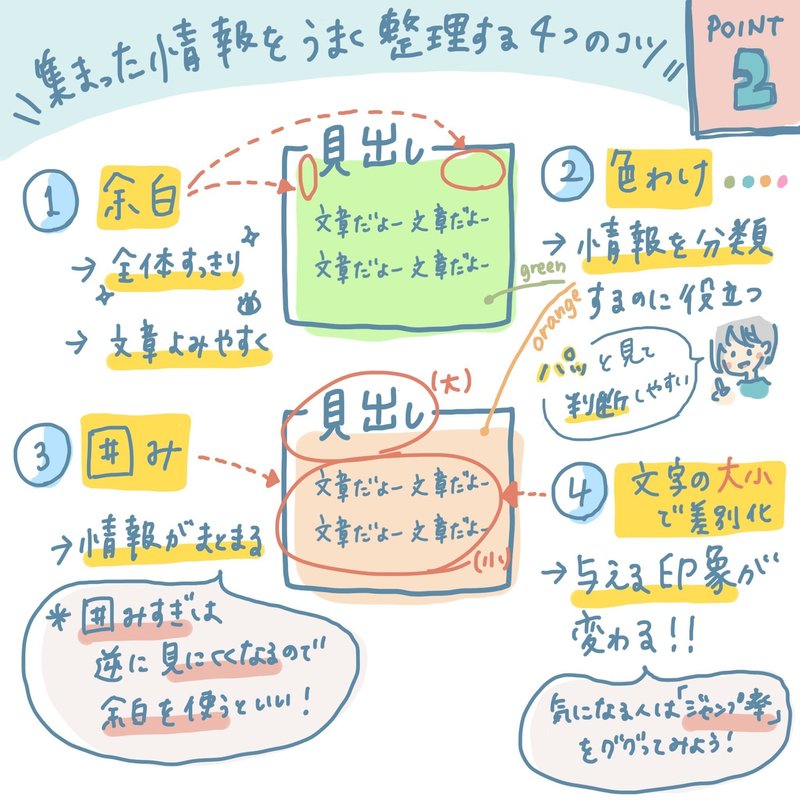 集まった情報をうまく整理する4つのコツ
POINT
2
1 余白
→ 全体すっきり
→ 文章よみやすく
見出し
文章だよー 文章だよー
文章だよー 文章だよー
green
orange
2 色わけ
→ 情報を分類
するのに役立つ
パッと見て
判断しやすい
3 囲み
→ 情報がまとまる
*囲みすぎは
逆に見にくくなるので
余白を使うといい!
見出し
(大)
文章だよー 文章だよー
文章だよー 文章だよー
(小)
4 文字の大小
で差別化
→ 与える印象が
変わる!!
気になる人は「ジャンプ率」
をググってみよう!